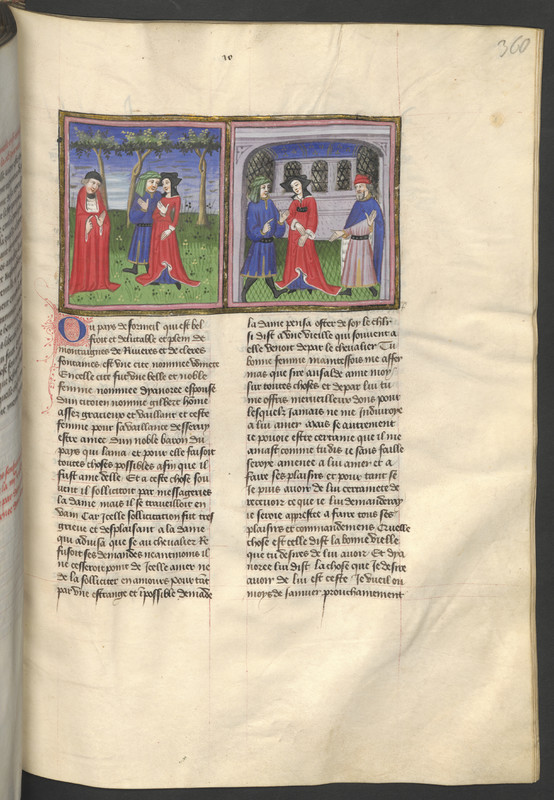 360
Ou pays de formeil qui est bel
froit et delitable et plein de
montaignes de Rivieres et de cleres
fontaines est une cite nommee
En celle cite fut une belle et noble
femme nommee dyanoree espouse
dun citoien nomme gilbert homme
assez gracieux et vaillant et ceste
femme pour sa vaillance desservy
estre amee dun noble baron du
pays qui lama et pour elle faisoit
toutes choses possibles afin que il
fust ame delle Et a ceste chose sou
vent il sollicitoit par messageries
la dame mais il se travailloit en
vain Car icelle sollicitacion fut tres
grieve et desplaisant a la dame
qui advisa que se au chevalier Re
fusoit ses demandes neantmoins il
ne cesseroit point de icelle amer ne
de la solliciter en amours pour tant
par une estrange et impossible demande
la dame pensa oster de soy le chlr
si dist a une vieille qui souvent a
elle venoit depar le chevalier Tu
bonne femme maintesfois me affer
mas que sire ansalde aime moy
sur toutes choses et depar lui tu
me offris merveilleux dons pour
lesquelz jamais ne me induiroye
a lui amer Mais se autrement
je povoie estre certaine que il me
amast comme tu dis je sans faille
seroye amenee a lui amer et a
faire ses plaisirs et pour tant se
je puis avoir de lui certainete de
recevoir ce que je lui demanderay
je seroie aprestee a faire tous ses
plaisirs et commandemens Quelle
chose est celle dist la bonne vieille
que tu desires de lui avoir Et dya
noree lui dist la chose que je desire
avoir de lui est ceste Je vueil ou
moys de janvier prouchainement